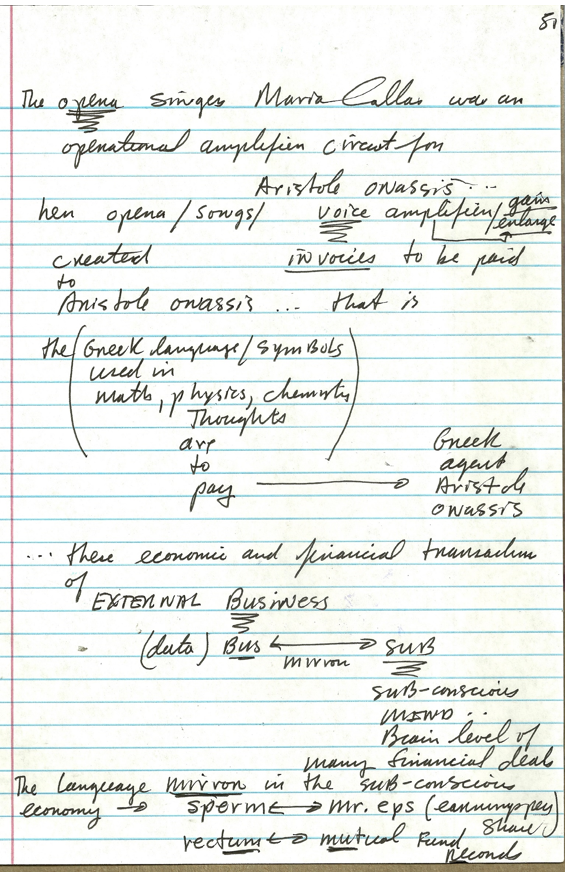 51
The opera singer Maria Callas was an
operational amplifier circuit for
Aristole onassis...
her opera/songs/ voice amplifier/gain
enlarge
created invoices to be paid
to
Aristole onassis ... that is
the (Greek language/symbols
used in
math, physics, chemistry
Thoughts
are
to
pay → Greek
agent
Aristole
onassis
... these economic and financial transaction
of
EXTERNAL Business
(data) Bus ↔ SUB
mirror
SUB-conscious
MIND ..
Brain level of
many financial deals
The Language mirror in the sub-conscious
economy → sperm ↔ mr. eps (earnings per
share)
rectum ↔ mutual Fund
Records